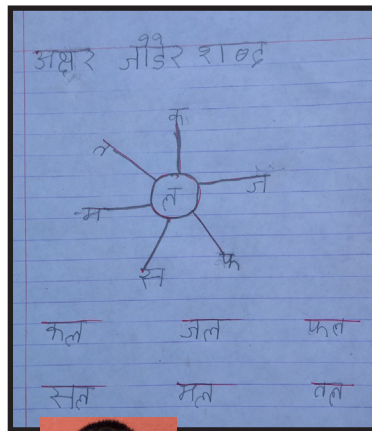 अक्षर जोडेर शब्द
क
त
ज
ल
म
स
फ
कल जल फल
सल मल तल